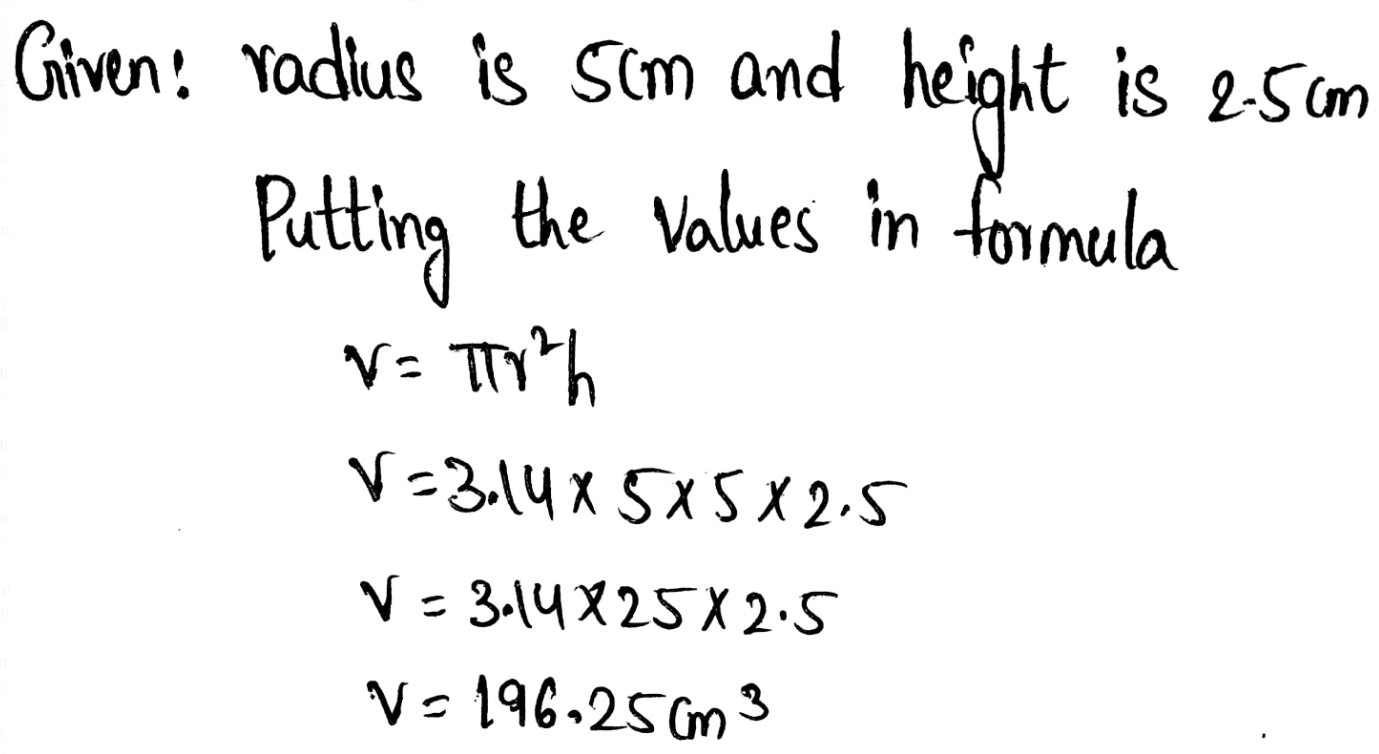 Given: radius is 5cm and height is 2.5cm
Putting the values in formula
V = πr²h
V = 3.14 x 5 x 5 x 2.5
V = 3.14 x 25 x 2.5
V = 196.25 cm³